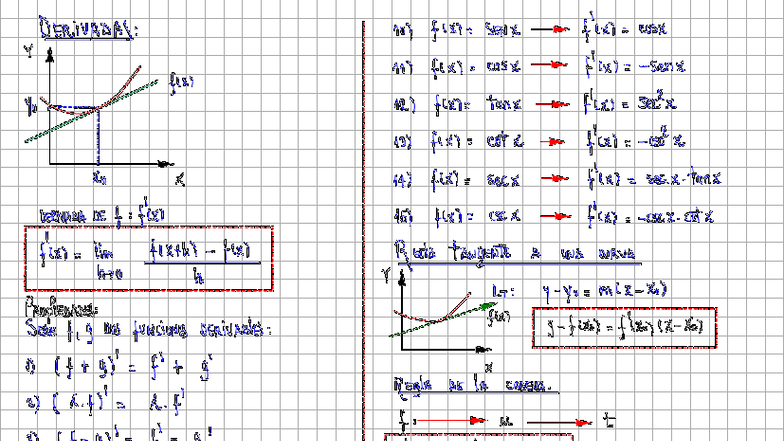 DERIVADAS:
Y
f(x)
y₀
x₀
X
DERIVADA DE f : f'(x)
f'(x) = lim f(x+h) - f(x)
h→0 h
Propiedades:
Sean f, g dos funciones derivables:
1) (f + g)' = f' + g'
2) (λ·f)' = λ·f'
10) f(x) = sen x → f'(x) = cos x
11) f(x) = cos x → f'(x) = -sen x
12) f(x) = tan x → f'(x) = sec² x
13) f(x) = cot x → f'(x) = -csc² x
14) f(x) = sec x → f'(x) = sec x · tan x
15) f(x) = csc x → f'(x) = -csc x · cot x
Recta tangente a una curva
Y
f(x)
X
LT: y - y₀ = m(x - x₀)
y - f(x₀) = f'(x₀)(x - x₀)
Regla de la cadena.